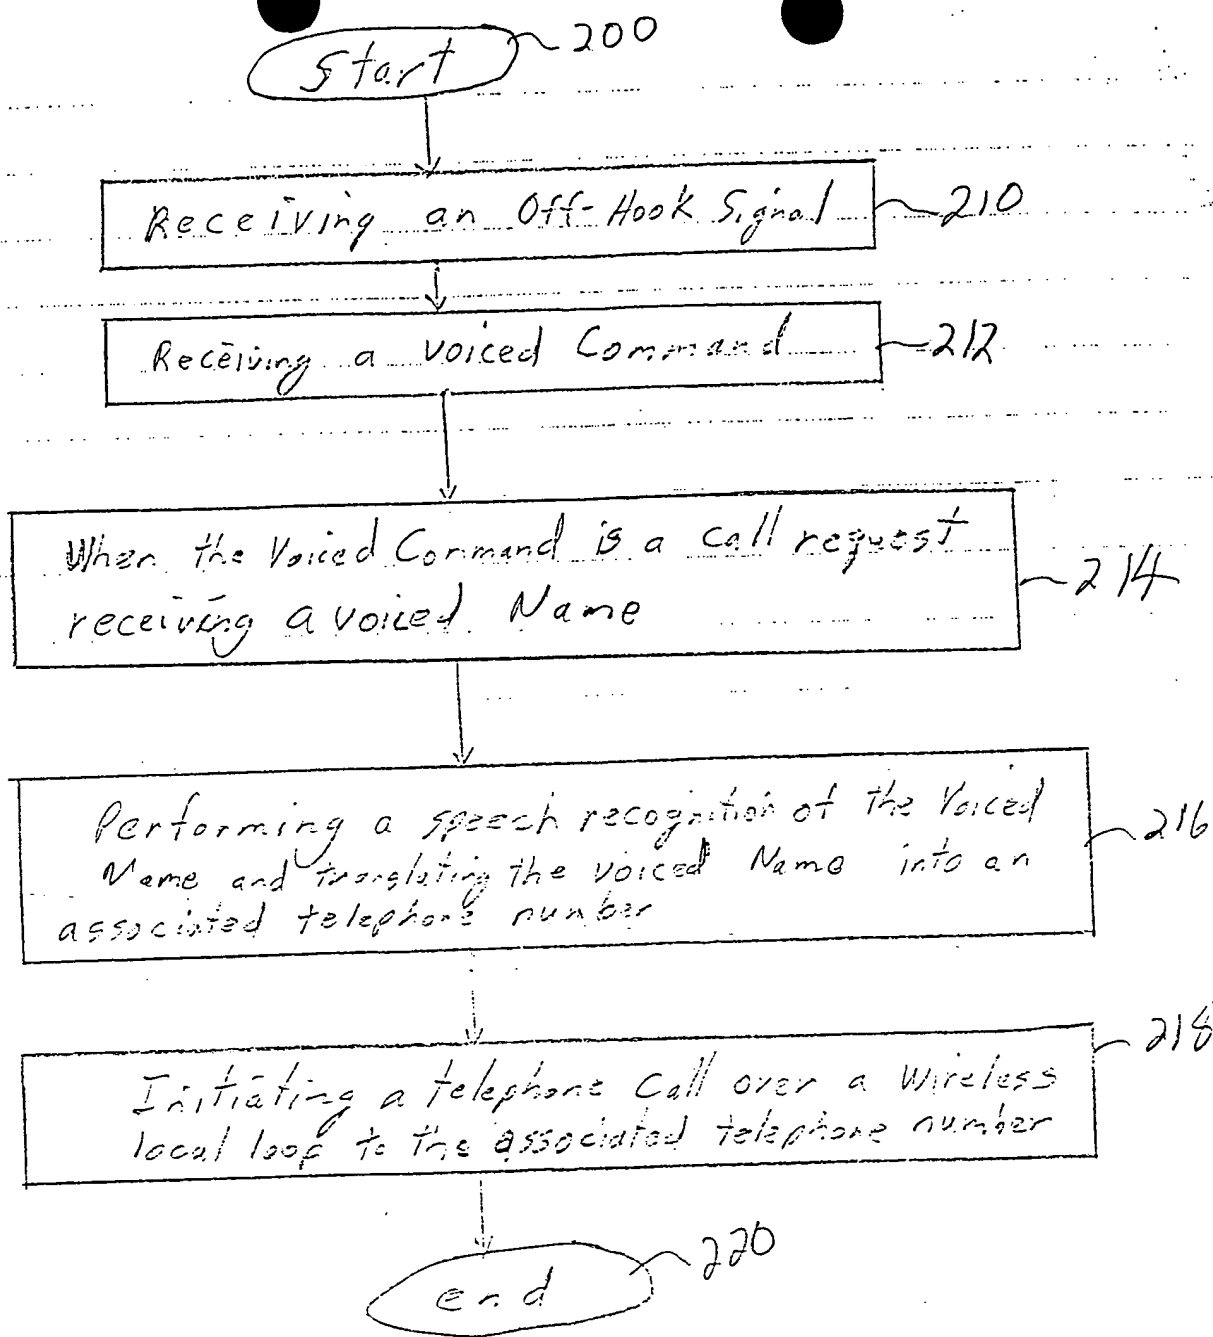 Start 200
Receiving an Off-Hook Signal 210
Receiving a Voiced Command 212
When the Voiced Command is a call request
receiving a voiced Name
214
Performing a speech recognition of the Voiced
Name and translating the voiced Name into an
associated telephone number
216
Initiating a telephone Call over a Wireless
local loop to the associated telephone number
218
end 220